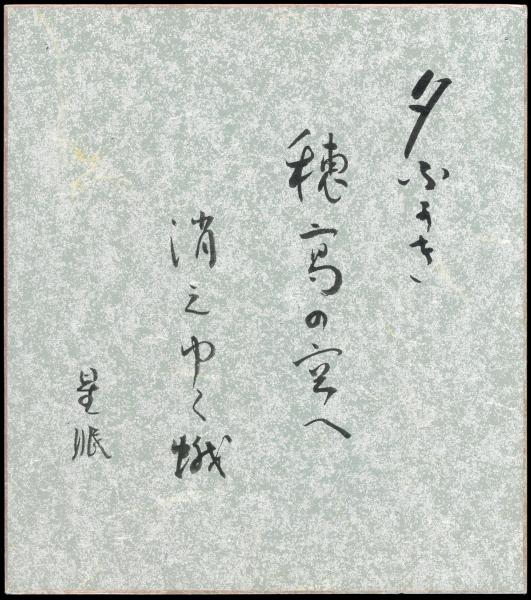 夕ふかき
穂高の空へ
消えゆく蛾
星眠